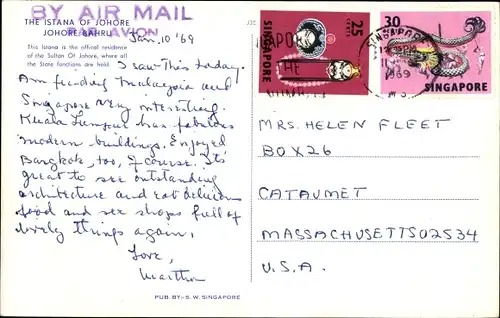 BY AIR MAIL
PAR AVION
THE ISTANA OF JOHORE
JOHORE BAHRU
This Istana is the official residence
of the Sultan Of Johore, where all
the State functions are held.
Jan. 10 '69
I saw this today.
Am finding Malaysia and
Singapore very interesting.
Kuala Lumpur has fabulous
modern buildings. Enjoyed
Bangkok, too, of course. It's
great to see outstanding
architecture and eat delicious
food and see shops full of
lovely things again.
Love,
Martha
PUB. BY:- S. W. SINGAPORE
25
CENTS
SINGAPORE
30
SINGAPORE
1969
MRS. HELEN FLEET
BOX 26
CATAUMET
MASSACHUSETTS 02534
U.S.A.